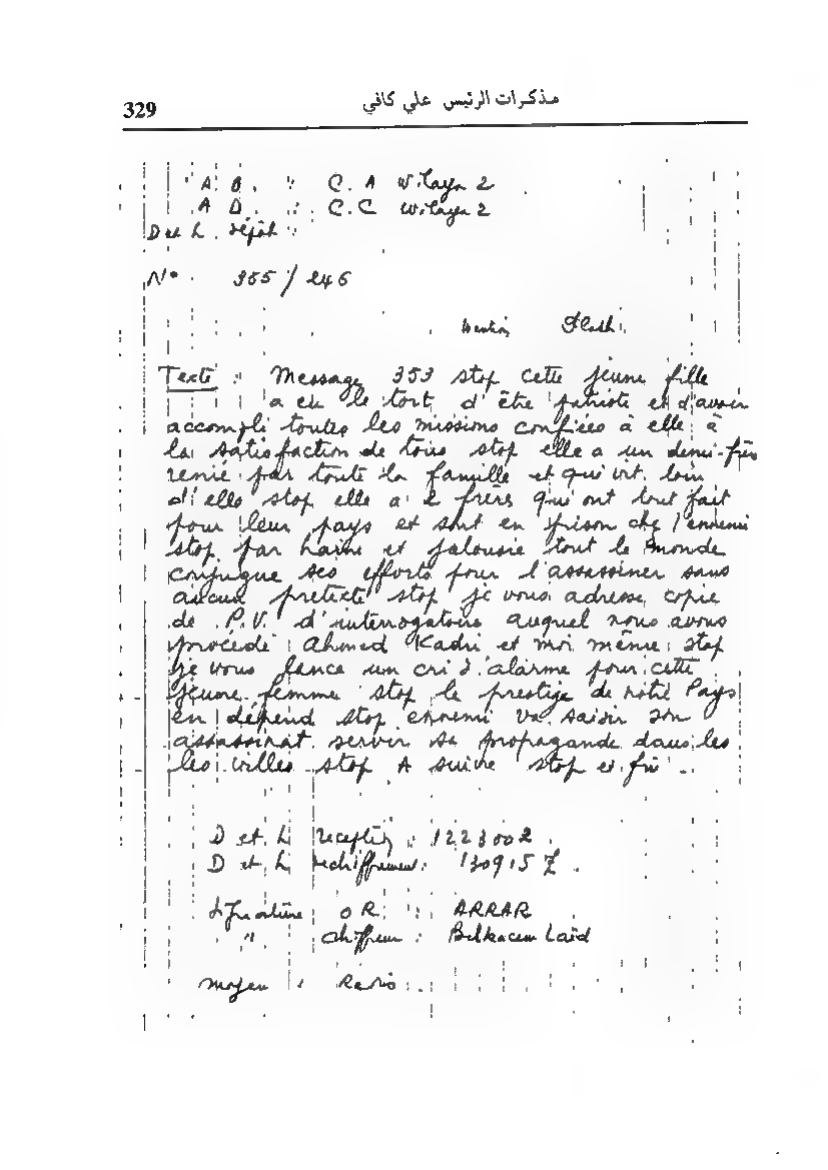 329
مذكرات الرئيس علي كافي
A D. : C. A Wilaya 2
A D. : C.C Wilaya 2
D et h. dépôt :
N° . 355 / 246
Mention Flash
Texte : Message 353 stop cette jeune fille
a eu le tort d'être patriote et d'avoir
accompli toutes les missions confiées à elle à
la satisfaction de tous stop elle a un demi-frère
renié par toute la famille et qui vit loin
d'elle stop elle a 2 frères qui ont tout fait
pour leur pays et sont en prison chez l'ennemi
stop par haine et jalousie tout le monde
conjugue ses efforts pour l'assassiner sans
aucun pretexte stop je vous adresse copie
de P.V. d'interrogatoire auquel nous avons
procédé Ahmed Kadri et moi même stop
je vous lance un cri d'alarme pour cette
jeune femme stop le prestige de notre Pays
en dépend stop ennemi va saisir son
assassinat servir sa propagande dans les
les villes stop A suivre stop et fin .
D et h reception : 1223002
D et h dechiffrement : 130915 Z .
Signature O R : ARRAR
" chiffreur : Belkacem Laïd
Moyen : Radio